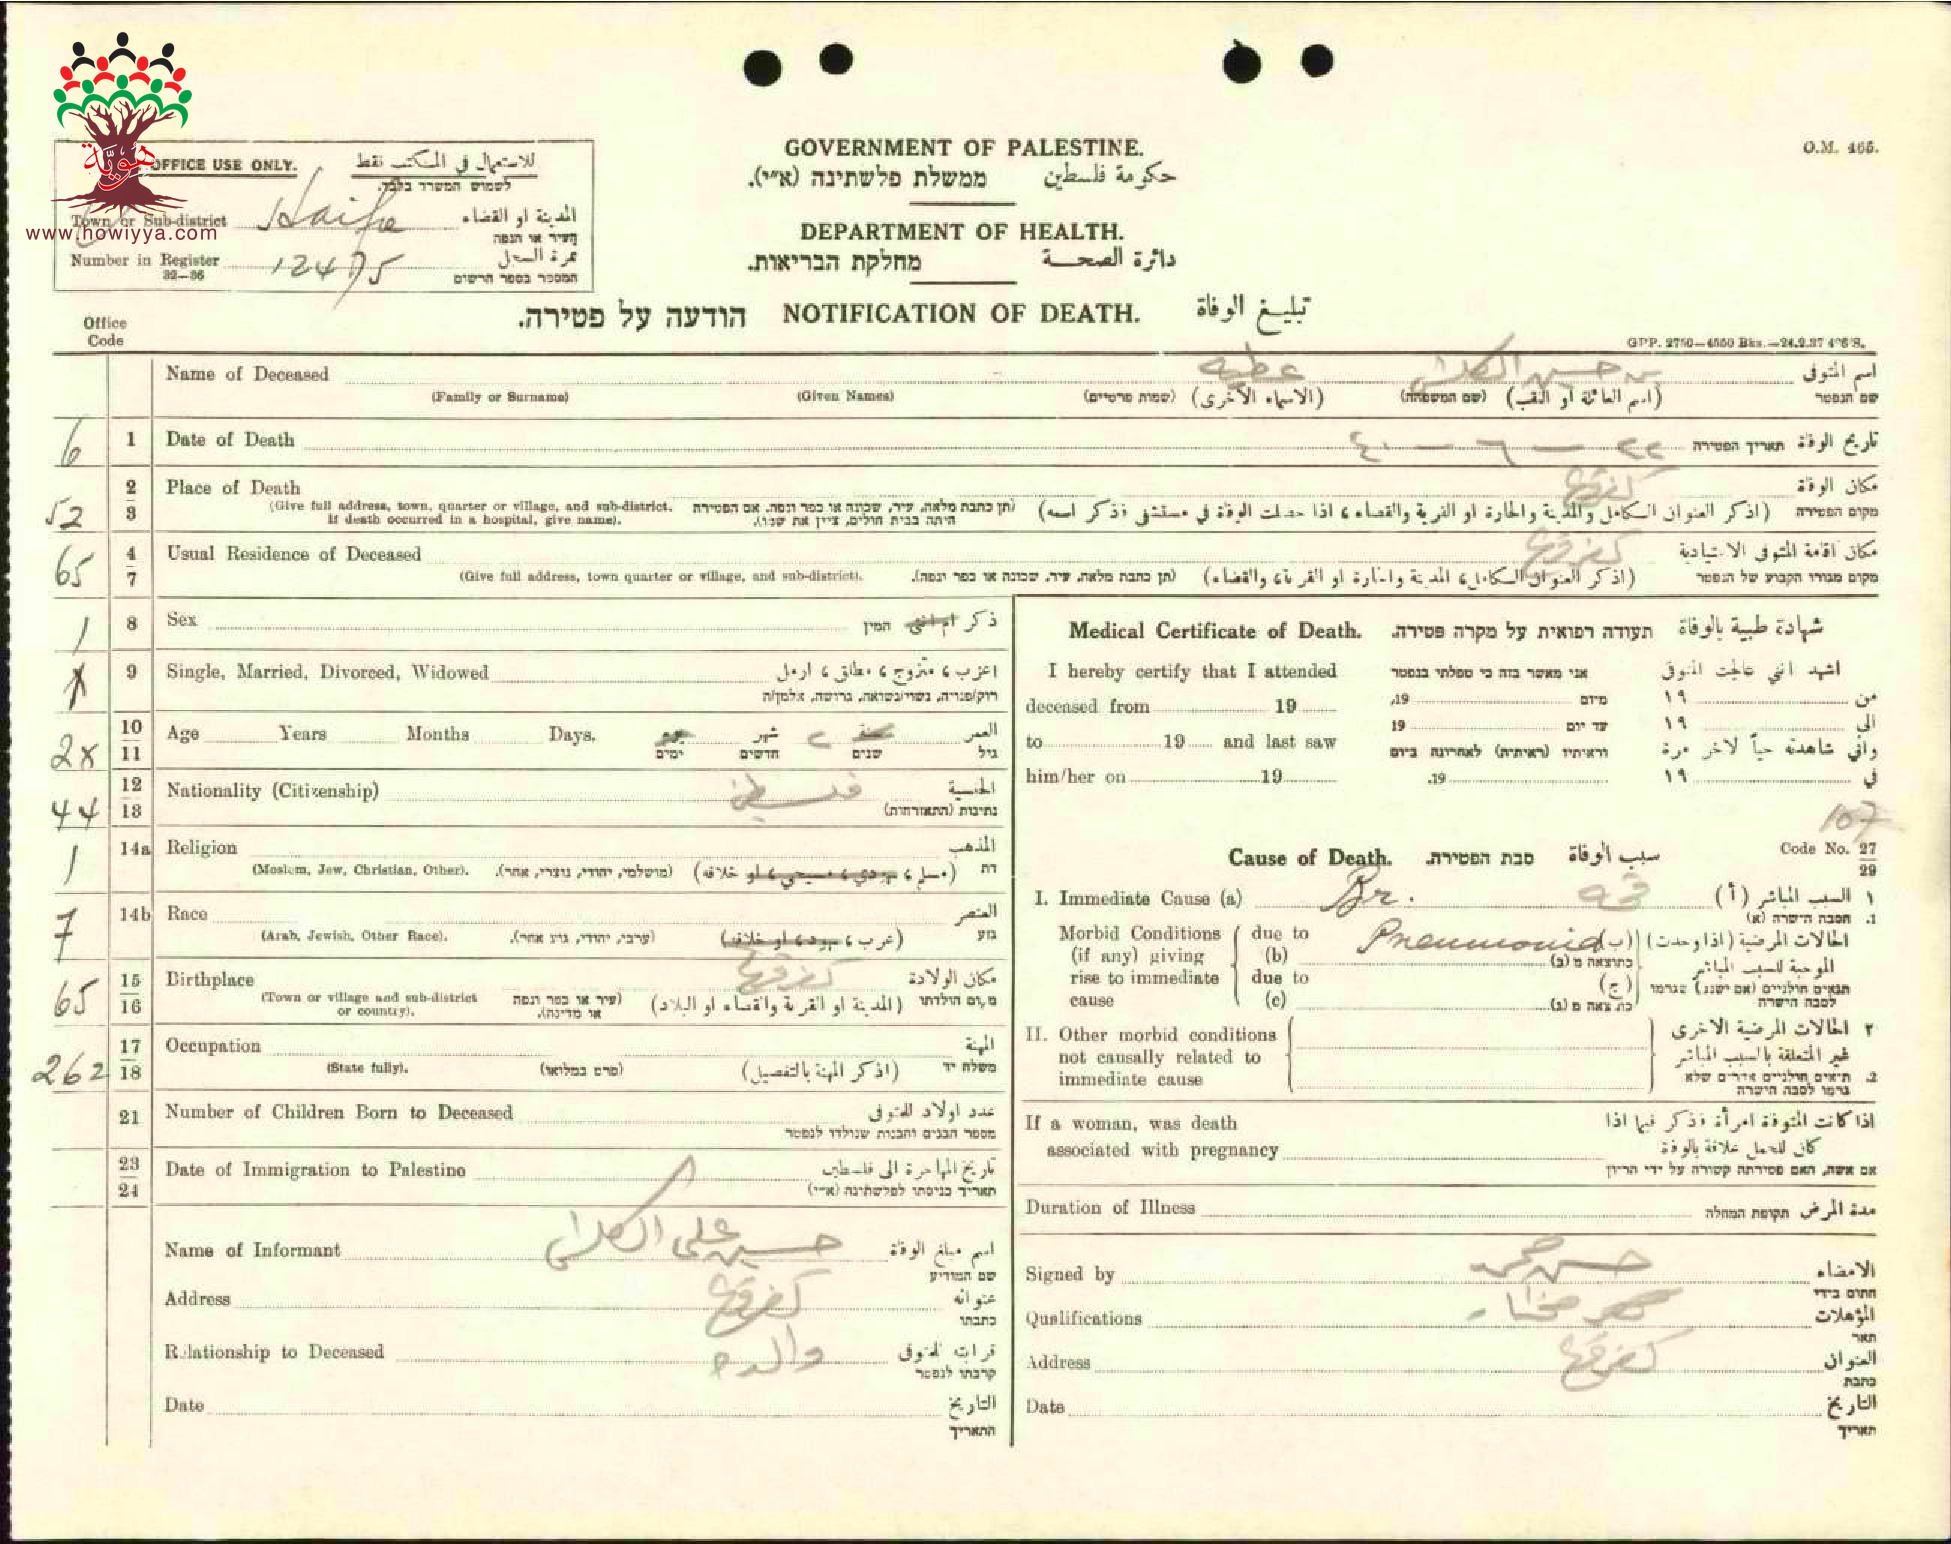 هويّة
www.howiyya.com
O.M. 465.
OFFICE USE ONLY. للاستعمال في المكتب فقط
לשמוש המשרד בלבד.
Town or Sub-district Haifa المدينة او القضاء
העיר או הנפה
Number in Register 12475 نمرة السجل
32—36 המספר בספר הרשום
GOVERNMENT OF PALESTINE.
حكومة فلسطين ממשלת פלשתינה (א״י).
DEPARTMENT OF HEALTH.
دائرة الصحة מחלקת הבריאות.
הודעה על פטירה. NOTIFICATION OF DEATH. تبليغ الوفاة
Office
Code
GPP. 2750—4550 Bks.—24.9.37
Name of Deceased عطيه بن حسين اسم المتوفى
(Family or Surname) (Given Names) (שמות פרטיים) (الاسماء الاخرى) (שם המשפחה) (اسم العائلة او اللقب) שם הנפטר
6 1 Date of Death ٢٢ — ٦ — ٤٠ תאריך הפטירה تاريخ الوفاة
52 2 3 Place of Death مكان الوفاة
(Give full address, town, quarter or village, and sub-district. (תן כתבת מלאה, עיר, שכונה או כפר ונפה. אם הפטירה (اذكر العنوان الكامل والمدينة والحارة او القرية والقضاء، اذا حصلت الوفاة في مستشفى فذكر اسمه) מקום הפטירה
If death occurred in a hospital, give name). היתה בבית חולים, ציין את שמו).
65 4 7 Usual Residence of Deceased مكان اقامة المتوفى الاعتيادية
(Give full address, town quarter or village, and sub-district). (תן כתבת מלאה, עיר, שכונה או כפר ונפה). (اذكر العنوان الكامل، المدينة والحارة او القرية، والقضاء) מקום מגורו הקבוע של הנפטר
1 8 Sex ذكر ام انثى המין
9 Single, Married, Divorced, Widowed اعزب، متزوج، مطلق، ارمل
רוק/פנויה, נשוי/נשואה, גרוש/ה, אלמן/ה
10 11 Age Years Months Days. يوم شهر ٢ سنة العمر
ימים חדשים שנים גיל
44 12 13 Nationality (Citizenship) الجنسية
נתינות (התאזרחות)
1 14a Religion المذهب
(Moslem, Jew, Christian, Other). (מושלמי, יהודי, נוצרי, אחר). (مسلم، يهودي، مسيحي، او خلافه) דת
7 14b Race العنصر
(Arab, Jewish, Other Race). (ערבי, יהודי, גזע אחר). (عرب، يهود، او خلافه) גזע
65 15 16 Birthplace مكان الولادة
(Town or village and sub-district (עיר או כפר ונפה (المدينة او القرية والقضاء او البلاد) מקום הולדתו
or country). או מדינה).
262 17 18 Occupation المهنة
(State fully). (פרט במלואו) (اذكر المهنة بالتفصيل) משלח יד
21 Number of Children Born to Deceased عدد اولاد المتوفى
מספר הבנים והבנות שנולדו לנפטר
23 24 Date of Immigration to Palestine تاريخ المهاجرة الى فلسطين
תאריך כניסתו לפלשתינה (א״י)
Name of Informant حسين علي اسم مبلغ الوفاة
שם המודיע
Address عنوانه
כתבתו
Relationship to Deceased والده قرابته للمتوفى
קרבתו לנפטר
Date التاريخ
התאריך
Medical Certificate of Death. תעודה רפואית על מקרה פטירה. شهادة طبية بالوفاة
I hereby certify that I attended אני מאשר בזה כי טפלתי בנפטר اشهد انني عالجت المتوفى
deceased from 19 מיום 19, من ١٩
to 19 and last saw עד יום 19 الى ١٩
וראיתיו (ראיתיה) לאחרונה ביום واني شاهدته حياً لآخر مرة
him/her on 19 19. في ١٩
107
Code No. 27 29
Cause of Death. סבת הפטירה. سبب الوفاة
I. Immediate Cause (a) Br. ١ السبب المباشر (أ)
1. הסבה הישרה (א)
Morbid Conditions due to Pneumonia (ب) الحالات المرضية (اذا وجدت)
(if any) giving (b) כתוצאה מ (ב) الموجبة للسبب المباشر
rise to immediate due to (ج) תנאים חולניים (אם ישנם) שגרמו
cause (c) כתוצאה מ (ג) לסבה הישרה
II. Other morbid conditions ٢ الحالات المرضية الاخرى
not causally related to غير المتعلقة بالسبب المباشر
immediate cause 2. תנאים חולניים אחרים שלא
גרמו לסבה הישרה
If a woman, was death اذا كانت المتوفاة امرأة فذكر فيما اذا
associated with pregnancy كان للحمل علاقة بالوفاة
אם אשה, האם פטירתה קשורה על ידי הריון
Duration of Illness תקופת המחלה مدة المرض
Signed by الامضاء
חתום בידי
Qualifications المؤهلات
תאר
Address العنوان
כתבת
Date التاريخ
תאריך